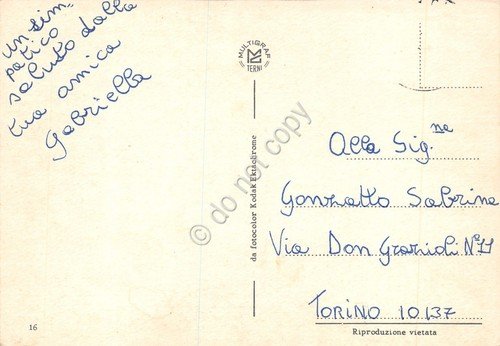 un sim-
patico
saluto dalla
tua amica
Gabriella
MULTIGRAF
TERNI
da fotocolor Kodak Ektachrome
© do not copy
Alla Sig.ne
Gonzatto Sabrina
Via Don Grazioli Nº 11
TORINO 10137
16
Riproduzione vietata